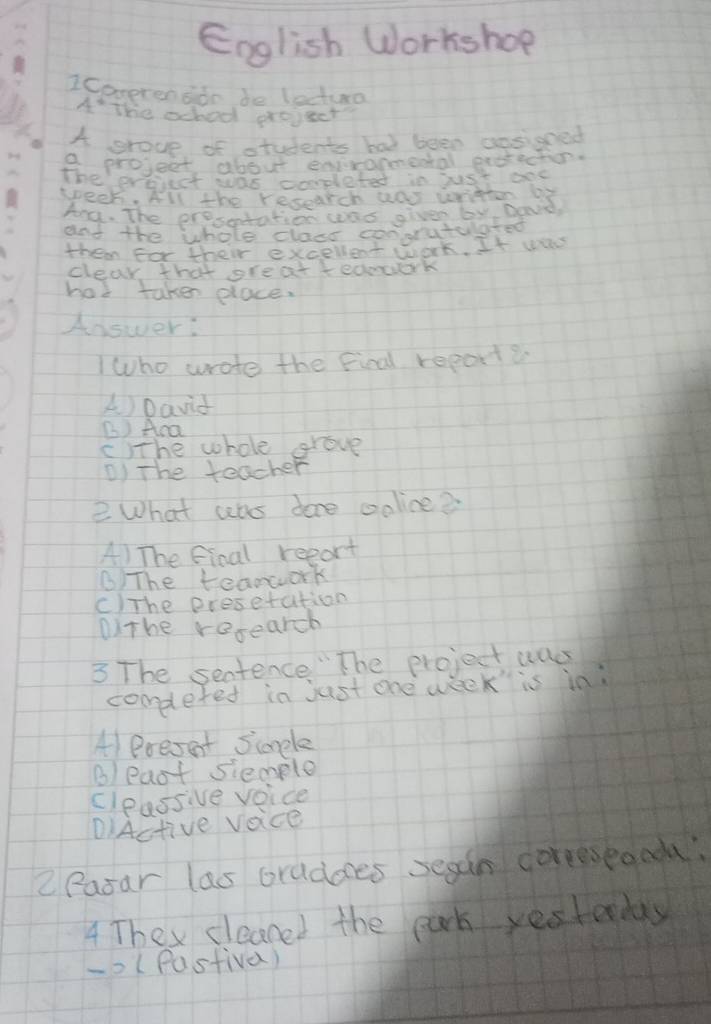 English Workshop
1 Comprensión de lectura
A "The school project"
A group of students had been assigned
a project about environmental protection.
The project was completed in just one
week. All the research was written by
Ana. The presentation was given by David,
and the whole class congratulated
them for their excellent work. It was
clear that great teamwork
had taken place.
Answer:
1 Who wrote the final report?
A) David
B) Ana
C) The whole group
D) The teacher
2 What was done online?
A) The final report
B) The teamwork
C) The presetation
D) The research
3 The sentence "The project was
completed in just one week" is in:
A) Preset Simple
B) Past Siemple
C) Passive voice
D) Active voice
2 Pasar las oraciones según corresponda:
4 They cleaned the park yesterday
-> (Pastiva)